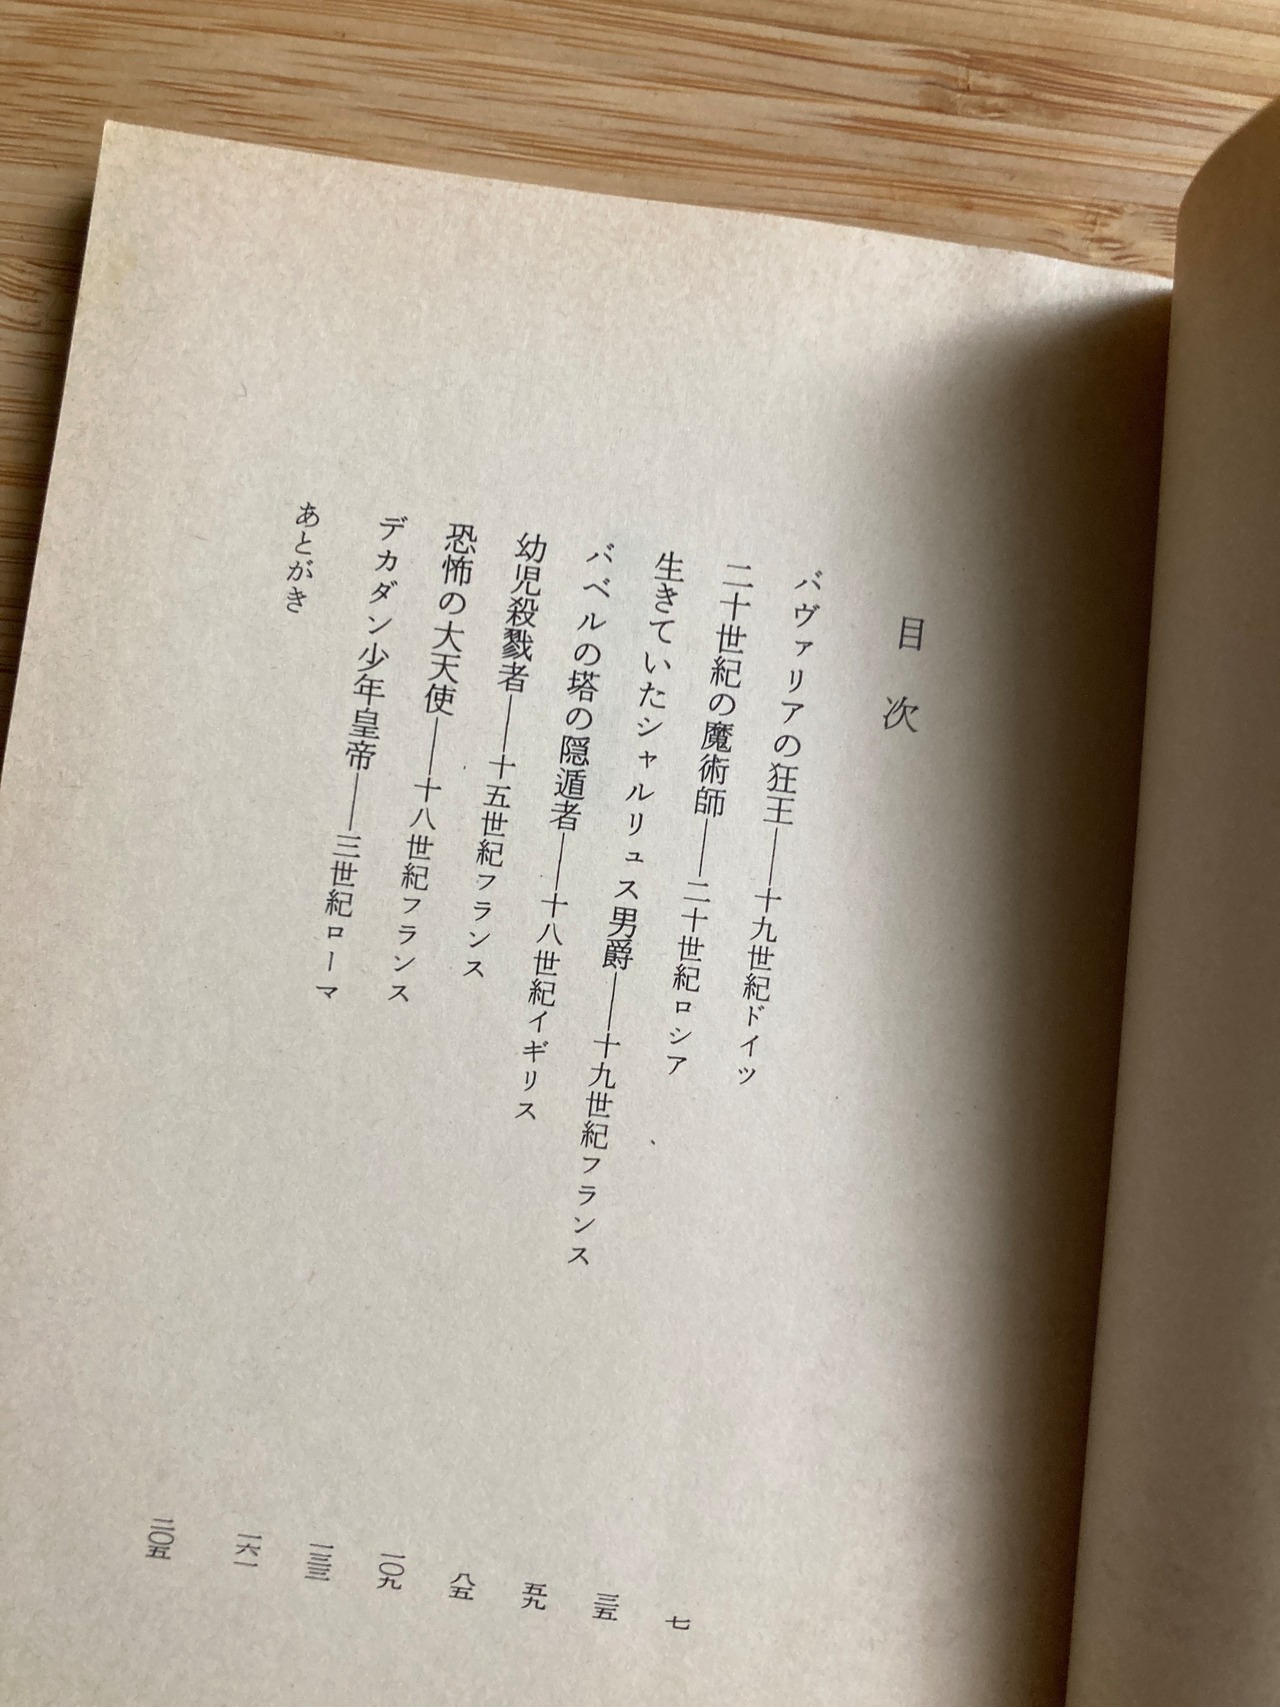 目次
バヴァリアの狂王――十九世紀ドイツ 七
二十世紀の魔術師――二十世紀ロシア 三五
生きていたシャルリュス男爵――十九世紀フランス 五九
バベルの塔の隠遁者――十八世紀イギリス 八五
幼児殺戮者――十五世紀フランス 一〇九
恐怖の大天使――十八世紀フランス 一三三
デカダン少年皇帝――三世紀ローマ 一六一
あとがき 二〇五